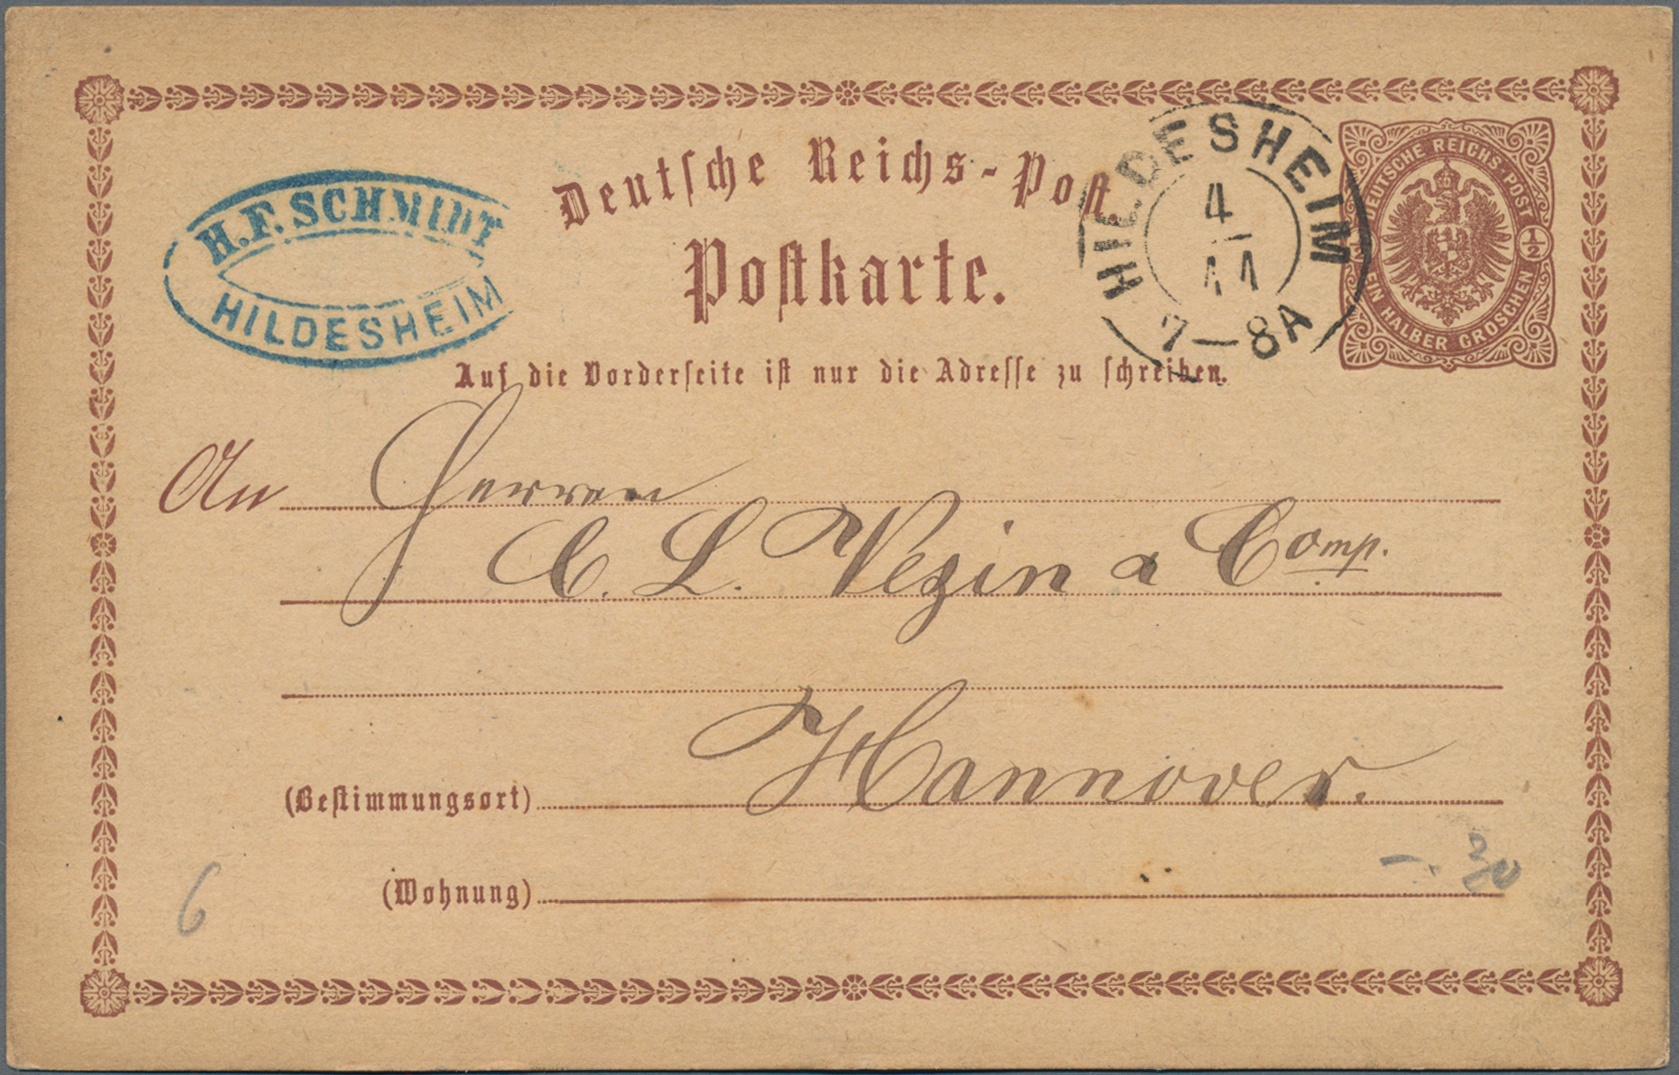 Deutsche Reichs-Post
Postkarte.
H.F. SCHMIDT
HILDESHEIM
HILDESHEIM
4
11
7-8A
DEUTSCHE REICHS-POST
½
EIN HALBER GROSCHEN
Auf die Vorderseite ist nur die Adresse zu schreiben.
An Herren
C. L. Vezin & Comp.
Hannover.
(Bestimmungsort)
(Wohnung)
-. 30
6